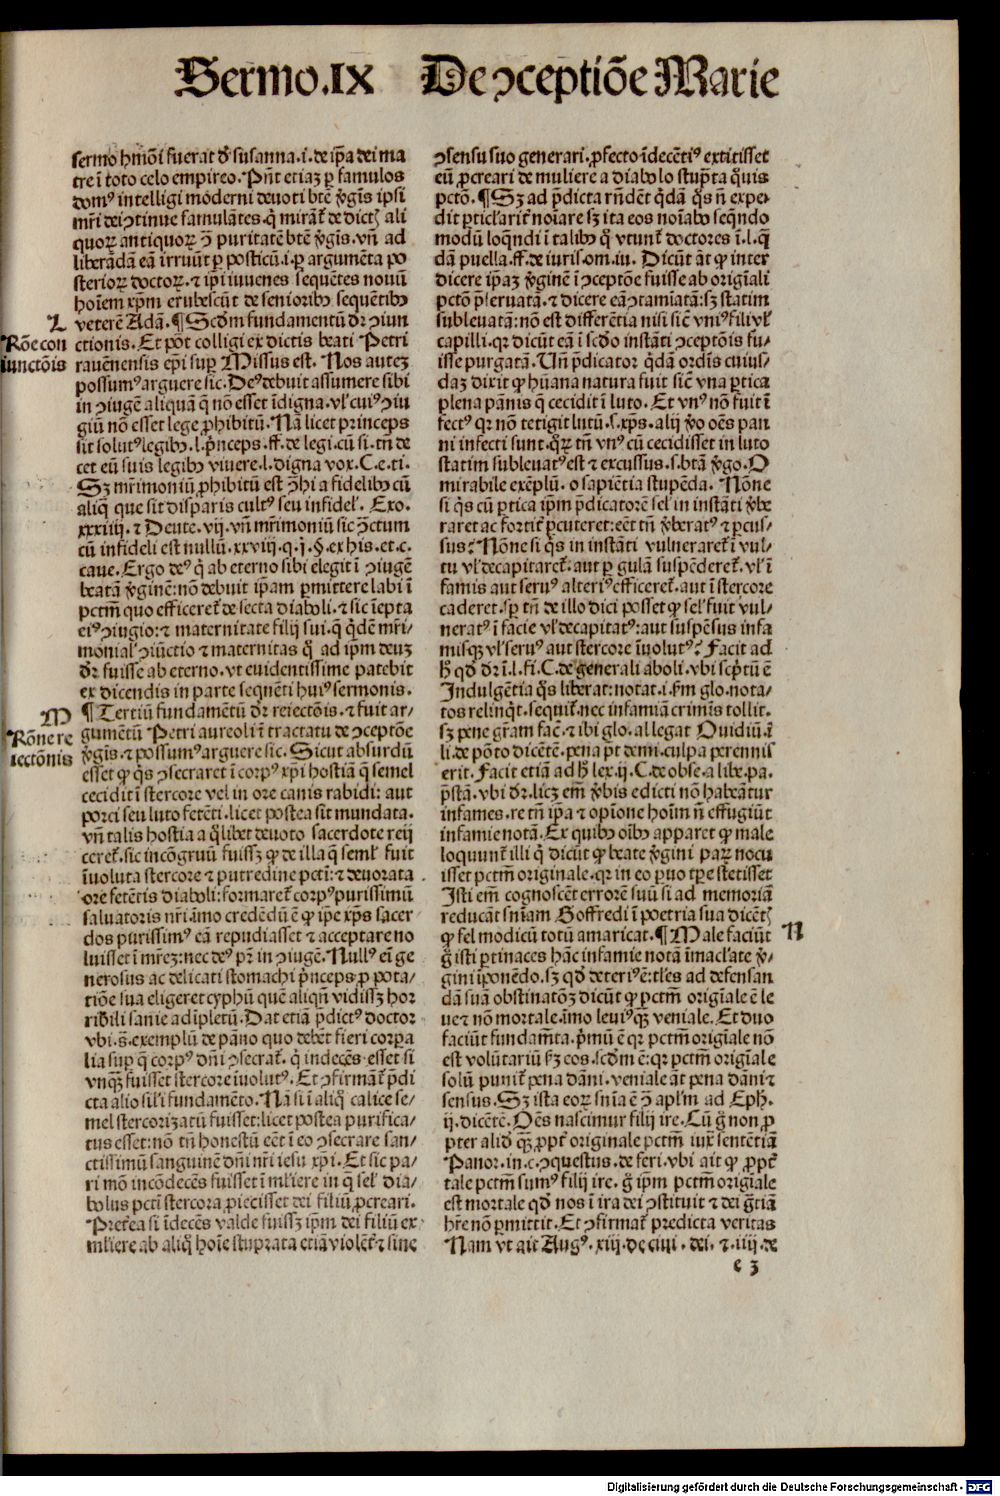 Sermo.IX De ↄceptiõe Marie
sermo hmõi fuerat đ susanna.i.de ip̃a dei ma
tre ĩ toto celo empireo. Pñt etiaʒ ꝑ famulos
domꝰ intelligi moderni deuoti btẽ v̓gĩs ipsi
mr̃i dei ↄtinue famulãtes. q̃ mirãt̃ de dictꝭ ali
quoꝝ antiquoꝝ ↄ̃ puritatẽ btẽ v̓gĩs. vñ ad
liberãdã eã irruũt ꝑ posticũ.i.ꝑ argumẽta po
sterioꝝ doctoꝝ. ⁊ ip̃i iuuenes sequẽtes nouũ
hoĩem xp̃m erubescũt de seniorib⁹ sequẽtib⁹
L
veterẽ Adã. ¶ Scḋm fundamentũ dr̃ ↄiun
Rõe con
ctionis. Et põt colligi ex dictis beati Petri
iunctõis
rauẽnensis ep̃i suꝑ Missus est. Nos auteʒ
possumꝰ arguere sic. Deꝰ debuit assumere sibi
in ↄiugẽ aliquã q̃ nõ esset ĩdigna. vl̓ cuiꝰ ↄiu
giũ nõ esset lege ꝓhibitũ. Nã licet princeps
sit solutꝰ legib⁹.l.p̃nceps.ff.de legi.cũ si.tñ de
cet eũ suis legib⁹ viuere.l.digna vox.C.e.ti.
Sʒ mr̃imoniũ ꝓhibitũ est ↄ̃hi a fidelib⁹ cũ
aliq̃ que sit disparis cultꝰ seu infidel̓. Exo.
xxxiiij. ⁊ Deute.vij. vñ mr̃imoniũ sic ↄ̃ctum
cũ infideli est nullũ.xxviij.q.j.§.ex his.et.c.
caue. Ergo deꝰ q̃ ab eterno sibi elegit ĩ ↄiugẽ
beatã v̓ginẽ: nõ debuit ip̃am ꝑmittere labi ĩ
pctm̃ quo efficeret̃ de secta diaboli. ⁊ sic ĩepta
eiꝰ ↄiugio: ⁊ maternitate filij sui. q̃ q̃dẽ mr̃i-
monial̓ ↄiũctio ⁊ maternitas q̃ ad ip̃m deuʒ
dr̃ fuisse ab eterno. vt euidentissime patebit
ex dicendis in parte sequẽti huiꝰ sermonis.
M
¶ Tertiũ fundamẽtũ dr̃ reiectõis. ⁊ fuit ar-
Rõne re
gumẽtũ Petri aureoli ĩ tractatu de ↄceptõe
iectõnis
v̓gĩs. ⁊ possumꝰ arguere sic. Sicut absurdũ
esset ꝙ q̃s ↄsecraret ĩ corpꝰ xp̃i hostiã q̃ semel
cecidit ĩ stercore vel in ore canis rabidi: aut
porci seu luto fetẽti. licet postea sit mundata.
vñ talis hostia a q̃libet deuoto sacerdote reij
ceret̃. sic incõgruũ fuissʒ ꝙ de illa q̃ semĺ fuit
ĩuoluta stercore ⁊ putredine pcti: ⁊ deuorata
ore fetẽtis diaboli: formaret̃ corpꝰ purissimũ
saluatoris nr̃i. imo credẽdũ ẽ ꝙ ip̃e xp̃s sacer-
dos purissimꝰ eã repudiasset ⁊ acceptare no
luisset ĩ mr̃eʒ: nec deꝰ pr̃ in ↄiugẽ. Nullꝰ eĩ ge
nerosus ac delicati stomachi p̃nceps ꝓ pota-
tiõe sua eligeret cyphũ quẽ aliqñ vidissʒ hor
ribili sanie adĩpletũ. Dat etiã p̃dictꝰ doctor
vbi.s̃.exemplũ de pãno quo debẽt fieri corꝑa
lia suꝑ q̃ corpꝰ dñi ↄsecrat̃. q̃ indecẽs esset si
vnq̃ʒ fuisset stercore ĩuolutꝰ. Et ↄfirmãt̃ p̃di
cta alio sil̓i fundamẽto. Nã si ĩ aliq̃ calice se-
mel stercorizatũ fuisset: licet postea purifica-
tus esset: nõ tñ honestũ eẽt ĩ eo ↄsecrare san-
ctissimũ sanguinẽ dñi nr̃i iesu xp̃i. Et sic pa-
ri mõ incõdecẽs fuisset ĩ mĺiere in q̃ seĺ dia-
bolus pcti stercora ꝓiecisset dei filiũ ꝓcreari.
Pret̓ea si ĩdecẽs valde fuissʒ ip̃m dei filiũ ex
mĺiere ab aliq̃ hoĩe stuprata etiã violẽt̓ ⁊ sine
ↄsensu suo generari. ꝓfecto ĩdecẽtiꝰ extitisset
eũ ꝓcreari de muliere a diabolo stup̃ta q̃uis
pctõ. ¶ Sʒ ad p̃dicta rñdẽt q̃dã q̃s ñ expe-
dit ꝑticl̓arit̓ noĩare sʒ ita eos noĩabo seq̃ndo
modũ loq̃ndi ĩ talib⁹ q̃ vtunt̃ doctores ĩ.l.q̃
dã puella.ff.de iuris.om.iu. Dicũt ãt ꝙ inter
dicere ip̃aʒ v̓ginẽ ĩ ↄceptõe fuisse ab origĩali
pctõ p̃seruatã. ⁊ dicere eã ↄtamiatã: sʒ statim
subleuatã: nõ est differẽtia nisi sic̃ vniꝰ fili vl̓
capilli. qr dicũt eã ĩ scḋo instãti ↄceptõis fu-
isse purgatã. Vñ p̃dicator q̃dã ordĩs cuius-
daʒ dixit ꝙ hũana natura fuit sic̃ vna ꝑtica
plena pãnis q̃ cecidit ĩ luto. Et vnꝰ nõ fuit ĩ
fectꝰ qr nõ tetigit lutũ.s.xp̃s. alij v̓o oẽs pan
ni infecti sunt. q̃ꝝ tñ vnꝰ cũ cecidisset in luto
statim subleuatꝰ est ⁊ excussus.s.btã v̓go. O
mirabile exẽplũ. o sapiẽtia stupẽda. Nõne
si q̃s cũ ꝑtica ip̃m p̃dicatorẽ seĺ in instãti v̓be
raret ac fortit̓ ꝑcuteret: eẽt tñ v̓beratꝰ ⁊ ꝑcus-
sus? Nõne si q̃s in instãti vulneraret̃ ĩ vul-
tu vl̓ decapitaret̃. aut ꝑ gulã suspẽderet̃. vl̓ ĩ
famis aut seruꝰ alteriꝰ efficeret̃. aut ĩ stercore
caderet. sp̃ tñ de illo dici posset ꝙ seĺ fuit vul-
neratꝰ ĩ facie vl̓ decapitatꝰ: aut suspẽsus infa
misqʒ vl̓ seruꝰ aut stercore ĩuolutꝰ? Facit ad
h̓ qḋ dr̃ ĩ.l.fi.C.de generali aboli. vbi scp̃tũ ẽ
Indulgẽtia q̃s liberat: notat.i.ꝑm glo.nota-
tos relinq̃t. sequit̃. nec infamiã crimĩs tollit.
sʒ pene gr̃am facẽ. ⁊ ibi glo. allegat Ouidiũ.ĩ
li.de põto dicẽtẽ. pena pt̃ demi. culpa perennis
erit. Facit etiã ad h̓ lex.ij.C.de obse.a libe.pa.
p̃stã. vbi dr̃. licʒ em̃ v̓bis edicti nõ habeãtur
infames. re tñ ip̃a ⁊ opĩone hoĩm ñ effugiũt
infamie notã. Ex quib⁹ oĩb⁹ apparet ꝙ male
loquunt̃ illi q̃ dicũt ꝙ beate v̓gini paꝝ nocu
isset pctm̃ originale. qr in eo ꝑuo tꝑe stetisset
Isti em̃ cognoscẽt errorẽ suũ si ad memoriã
reducãt sñiam Goffredi ĩ poetria sua dicẽtꝭ
N
ꝙ fel modicũ totũ amaricat. ¶ Male faciũt
g̃ isti ꝑtinaces hãc infamie notã ĩmacl̓ate v̓-
gini ĩponẽdo. sʒ qḋ deteriꝰ ẽ: tl̓es ad defensan
dã suã obstinatõʒ dicũt ꝙ pctm̃ origĩale ẽ le
ue ⁊ nõ mortale. imo leuiꝰ q̃ʒ veniale. Et duo
faciũt fundam̃ta. p̃mũ ẽ qr pctm̃ origĩale nõ
est volũtariũ ẜʒ eos. scḋm ẽ: qr pctm̃ origĩale
solũ punit̃ pena dãni. veniale ãt pena dãni ⁊
sensus. Sʒ ista eoꝝ sñia ẽ ↄ̃ apl̓m ad Eph̓.
ij. dicẽtẽ. Oẽs nascimur filij ire. Cũ g̃ non ꝓ
pter aliḋ q̃ʒ ꝓpt̓ originale pctm̃ iux̃ sentẽtiã
Panor. in.c.ↄquestus.de feri. vbi ait ꝙ ꝓpt̓
tale pctm̃ sumꝰ filij ire. g̃ ip̃m pctm̃ origĩale
est mortale qḋ nos ĩ ira dei ↄstituit ⁊ dei gr̃tiã
hr̃e nõ ꝑmittit. Et ↄfirmat̃ predicta veritas
Nam vt ait Augꝰ. xiij.de ciui.dei. ⁊.iiij.de
e 3
Digitalisierung gefördert durch die Deutsche Forschungsgemeinschaft - DFG